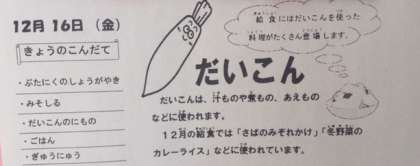 12月16日（金）
きょうのこんだて
・ぶたにくのしょうがやき
・みそしる
・だいこんのにもの
・ごはん
・ぎゅうにゅう
給食にはだいこんを使った
料理がたくさん登場します。
だいこん
だいこんは、汁ものや煮もの、あえもの
などに使われます。
12月の給食では「さばのみぞれかけ」「冬野菜の
カレーライス」などに使われています。